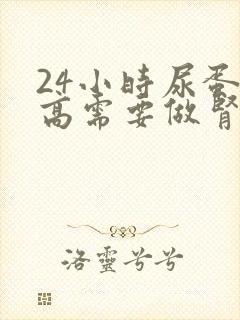 24小時尿蛋
高需要做腎
洛靈兮兮